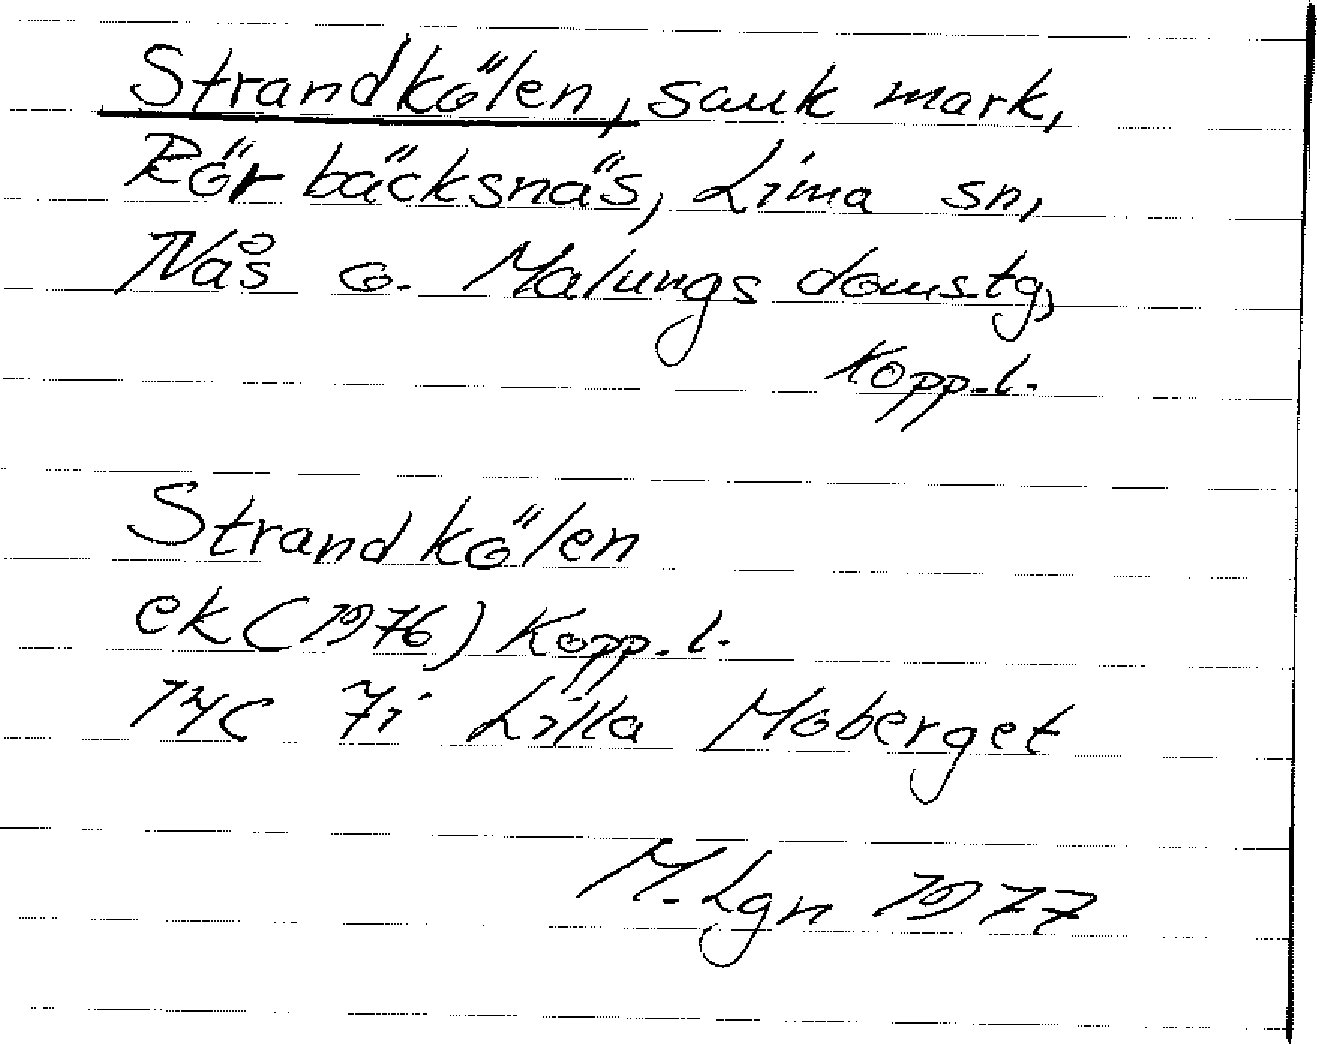 Strandkölen, sank mark,
Rörbäcksnäs, Lima sn,
Nås o. Malungs domstg,
Kopp. l.
Strandkölen
ek (1976) Kopp. l.
14C 7i Lilla Moberget
M. Lgn 1977